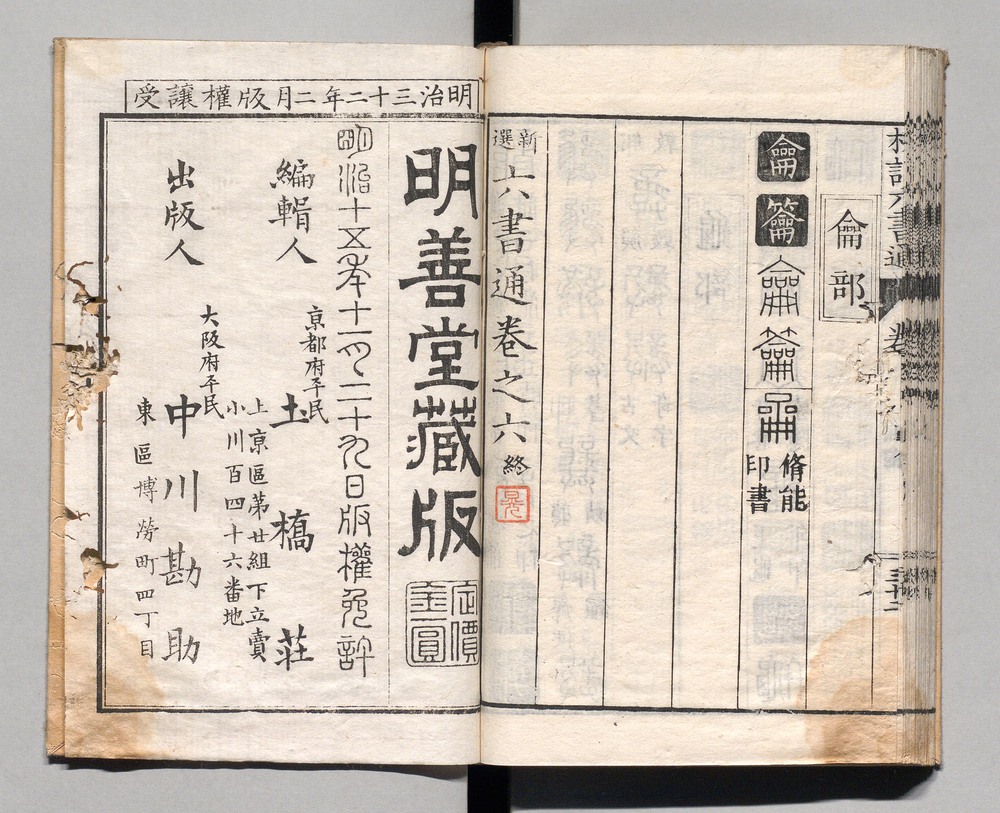 龠部
龠
籥
龠
籥
龠
脩能
印書
新選六書通卷之六終
明治三十二年二月版權讓受
明善堂藏版
定價
金圓
明治十五年十一月二十九日版權免許
編輯人
京都府平民
土橋莊
上京區第廿組下立賣
小川百四十六番地
出版人
大阪府平民
中川勘助
東區博勞町四丁目